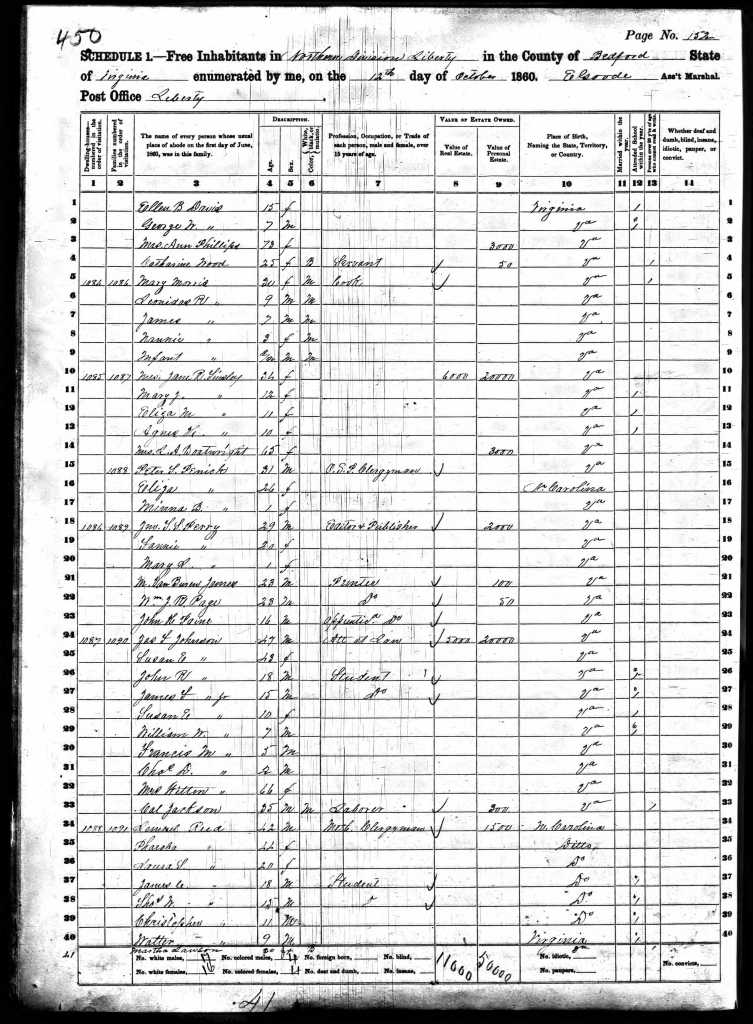 450
Page No. 152
SCHEDULE 1.—Free Inhabitants in Northern Division Liberty in the County of Bedford State
of Virginia enumerated by me, on the 12th day of October 1860. Ass't Marshal.
Post Office Liberty
DESCRIPTION. VALUE OF ESTATE OWNED.
Dwelling-houses—numbered in the order of visitation. Families numbered in the order of visitation. The name of every person whose usual place of abode on the first day of June, 1860, was in this family. Age. Sex. Color, White, black, or mulatto. Profession, Occupation, or Trade of each person, male and female, over 15 years of age. Value of Real Estate. Value of Personal Estate. Place of Birth, Naming the State, Territory, or Country. Married within the year. Attended School within the year. Persons over 20 years of age who cannot read & write. Whether deaf and dumb, blind, insane, idiotic, pauper, or convict.
1 2 3 4 5 6 7 8 9 10 11 12 13 14
1 Ellen B Davis 15 f Virginia 1 1
2 George W. " 7 m Va 2
3 Mrs. Ann Phillips 73 f 3000 Va 3
4 Catharine Wood 25 f B Servant 50 Va 1 4
5 1084 1086 Mary Morris f M Cook Va 1 5
6 Leonidas " 9 m M Va 6
7 James " 7 m M Va 7
8 Nannie " 3 f M Va 8
9 Infant " m M Va 9
10 1085 1087 Mrs. Jane R. 34 f 6000 20000 Va 10
11 Mary J. " 12 f Va 1 11
12 Eliza M " 11 f Va 1 12
13 Agnes " 10 f Va 1 13
14 Mrs. L. A Boatwright 65 f 3000 Va 14
15 1088 Peter 31 m Clergyman Va 15
16 Eliza " 26 f No Carolina 16
17 Minna B. " 1 f Va 17
18 1086 1089 Jno. Perry 29 M Editor & Publisher 2000 Va 18
19 Fannie " 20 f Va 19
20 Mary L. " 1 f Va 20
21 M. Van Buren James 23 M Printer 100 Va 21
22 Wm J R Page 23 M Do 50 Va 22
23 John 16 M Do Va 23
24 1087 1090 Jas F Johnson 47 M Att at Law 5000 20000 Va 24
25 Susan E " 43 f Va 25
26 John R " 18 M Student Va 26
27 James F " Jr 15 M Do Va 27
28 Susan E " 10 f Va 1 28
29 William W. " 7 M Va 29
30 Francis M " 5 M Va 30
31 Chas D. " 2 M Va 31
32 Mrs 66 f Va 32
33 Cal Jackson 35 M M Laborer 300 Va 1 33
34 1088 1091 Lemuel Reed 42 M Clergyman 1500 No Carolina 34
35 " 44 f Ditto 35
36 Laura S. " 20 f Do 36
37 James 18 M Student Do 37
38 Thos 15 M Do 38
39 Christopher " 11 M Do 39
40 Walter 9 M Virginia 40
41 Martha Dawson B
No. white males, No. colored males, No. foreign born, No. blind, No. idiotic,
No. white females, 16 No. colored females, 4 No. deaf and dumb, No. insane, 11000 50000 No. paupers, No. convicts,
41